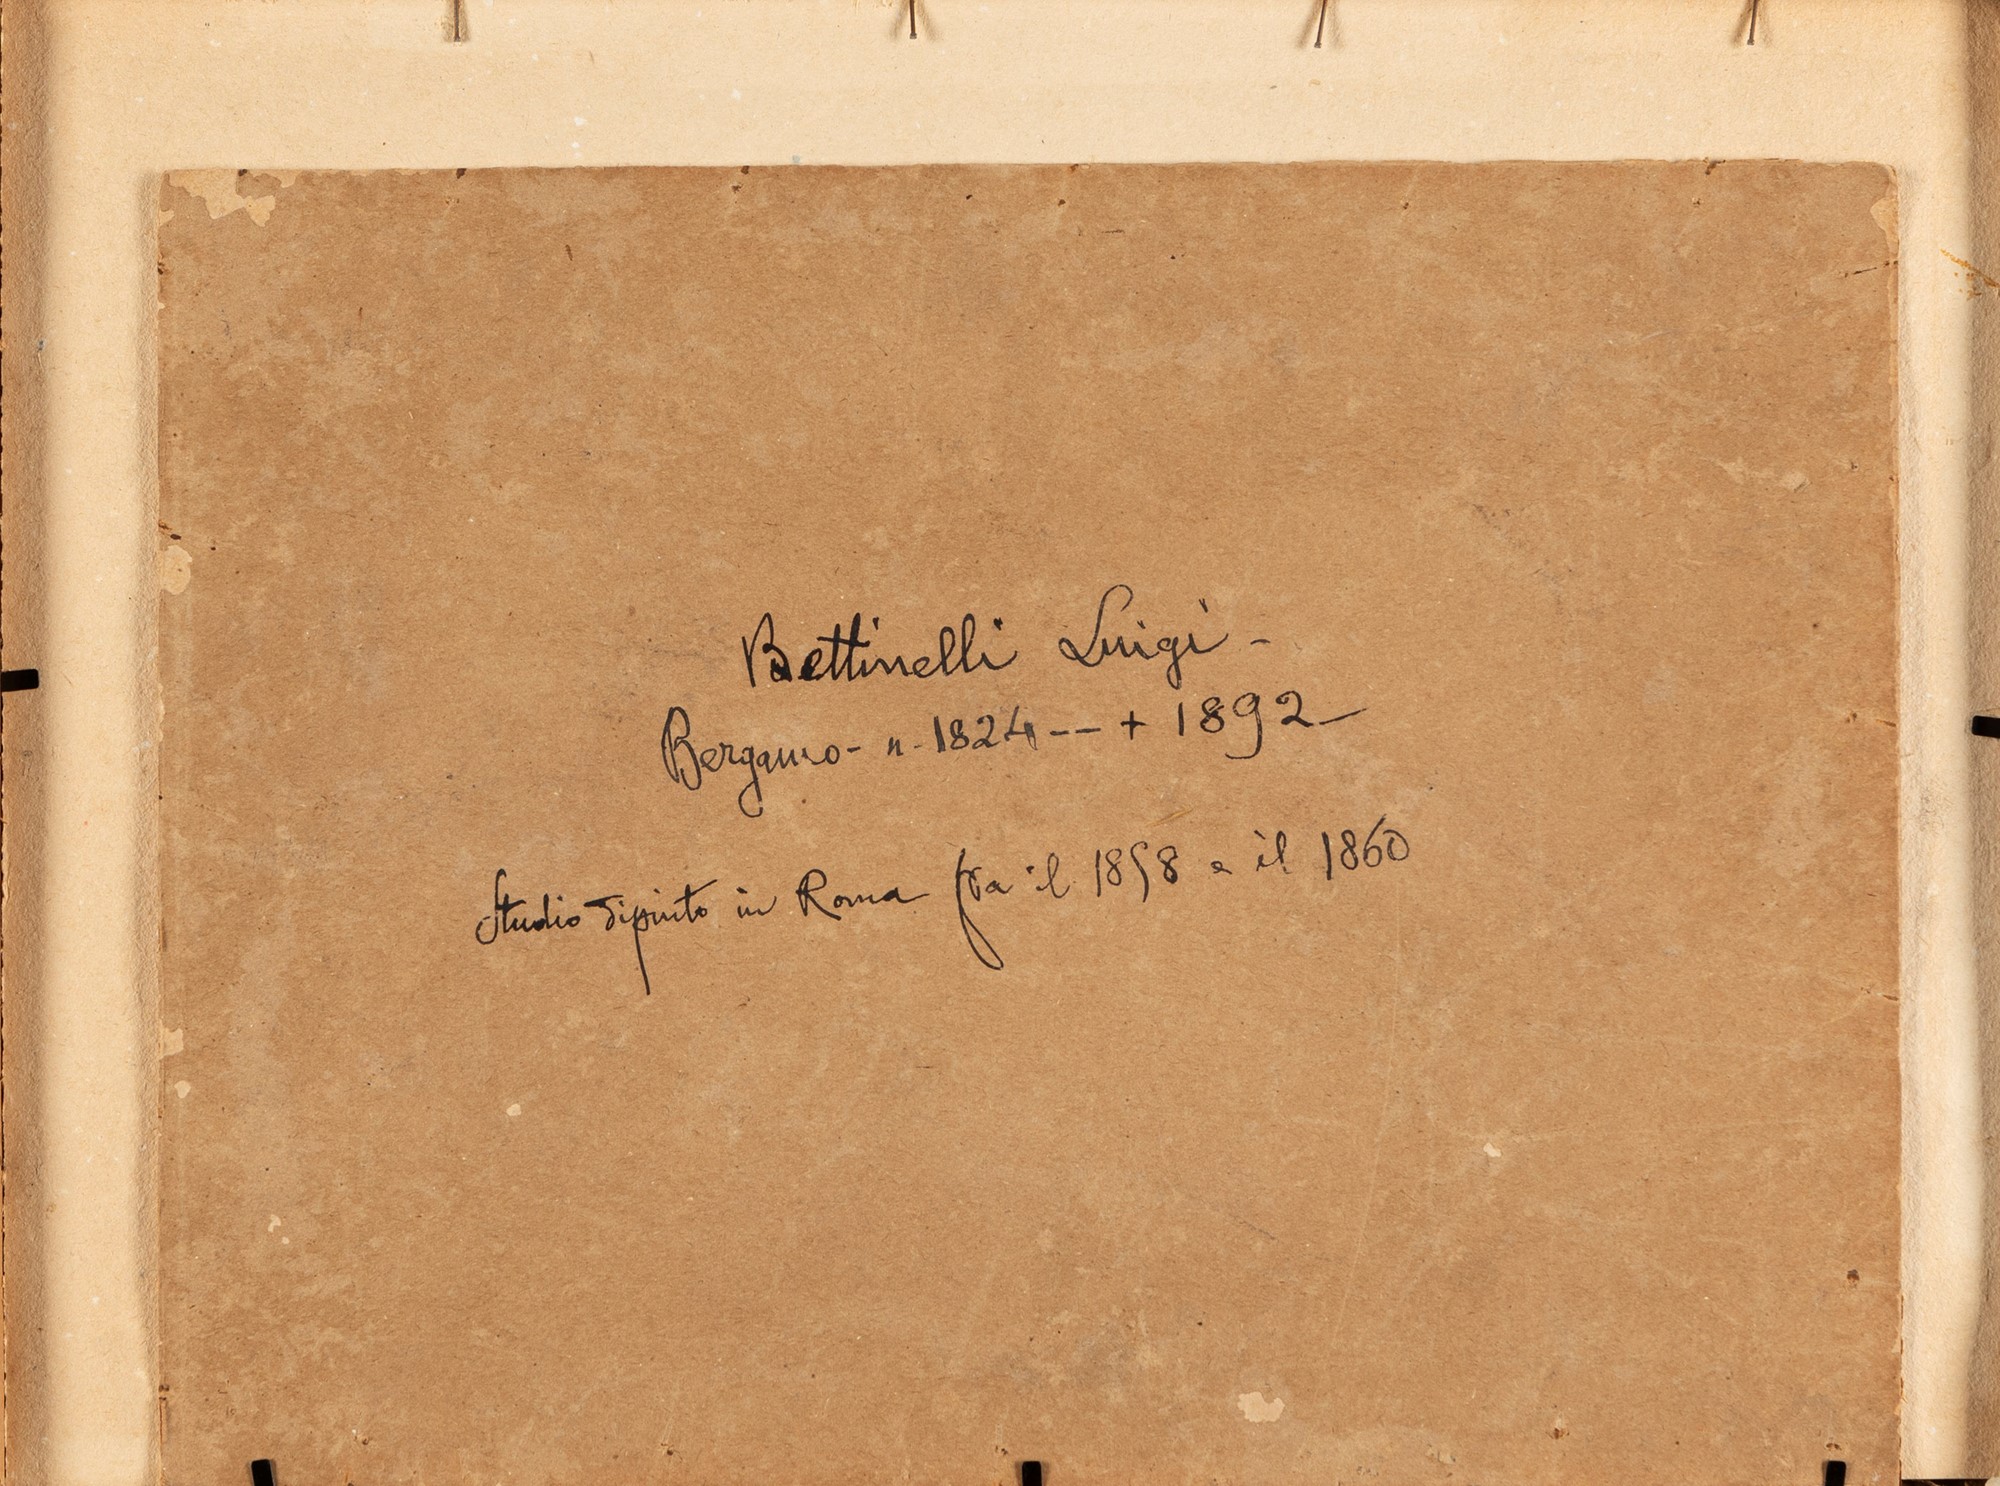 Bettinelli Luigi -
Bergamo - n - 1824 -- + 1892 -
Studio dipinto in Roma fra il 1858 e il 1860